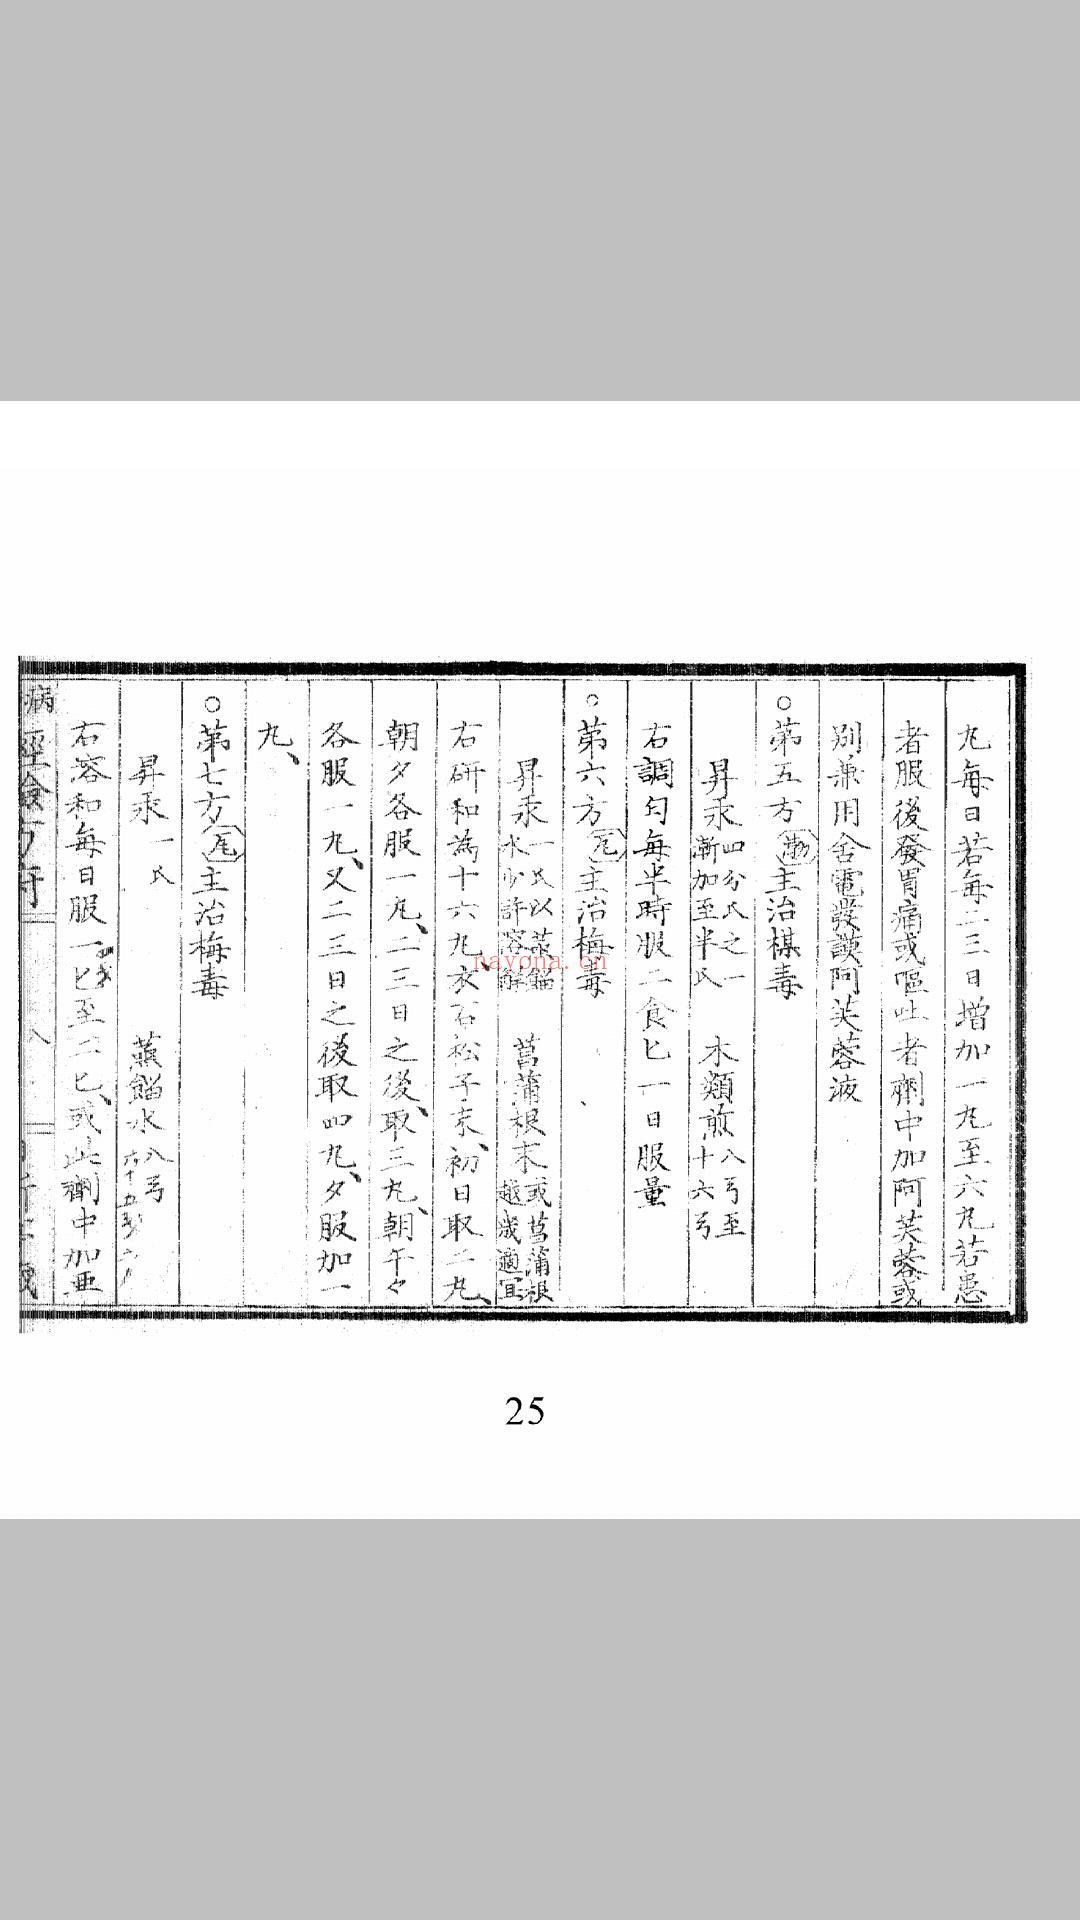 丸每日若每二三日增加一丸至六丸若患
者服後發胃痛或嘔吐者劑中加阿芙蓉或
別兼用舍電發謨阿芙蓉液
○第五方 勘 主治楳毒
昇汞 四分氏之一漸加至半氏 木類煎 八弓至十六弓
右調勻每半時服二食匕一日服量
○第六方 尾 主治梅毒
昇汞 一氏以蒸餾水少許溶解 菖蒲根末 或菖蒲根越歲適宜
右研和為十六丸衣石松子末、初日取二丸、
朝夕各服一丸、二三日之後、取三丸、朝午夕
各服一丸、又二三日之後取四丸、夕服加一
丸、
○第七方 尾 主治梅毒
昇汞 一氏 蒸餾水 八弓
右溶和每日服一匕至二匕、或此劑中加亜
病經驗方府
nayona.cn
25